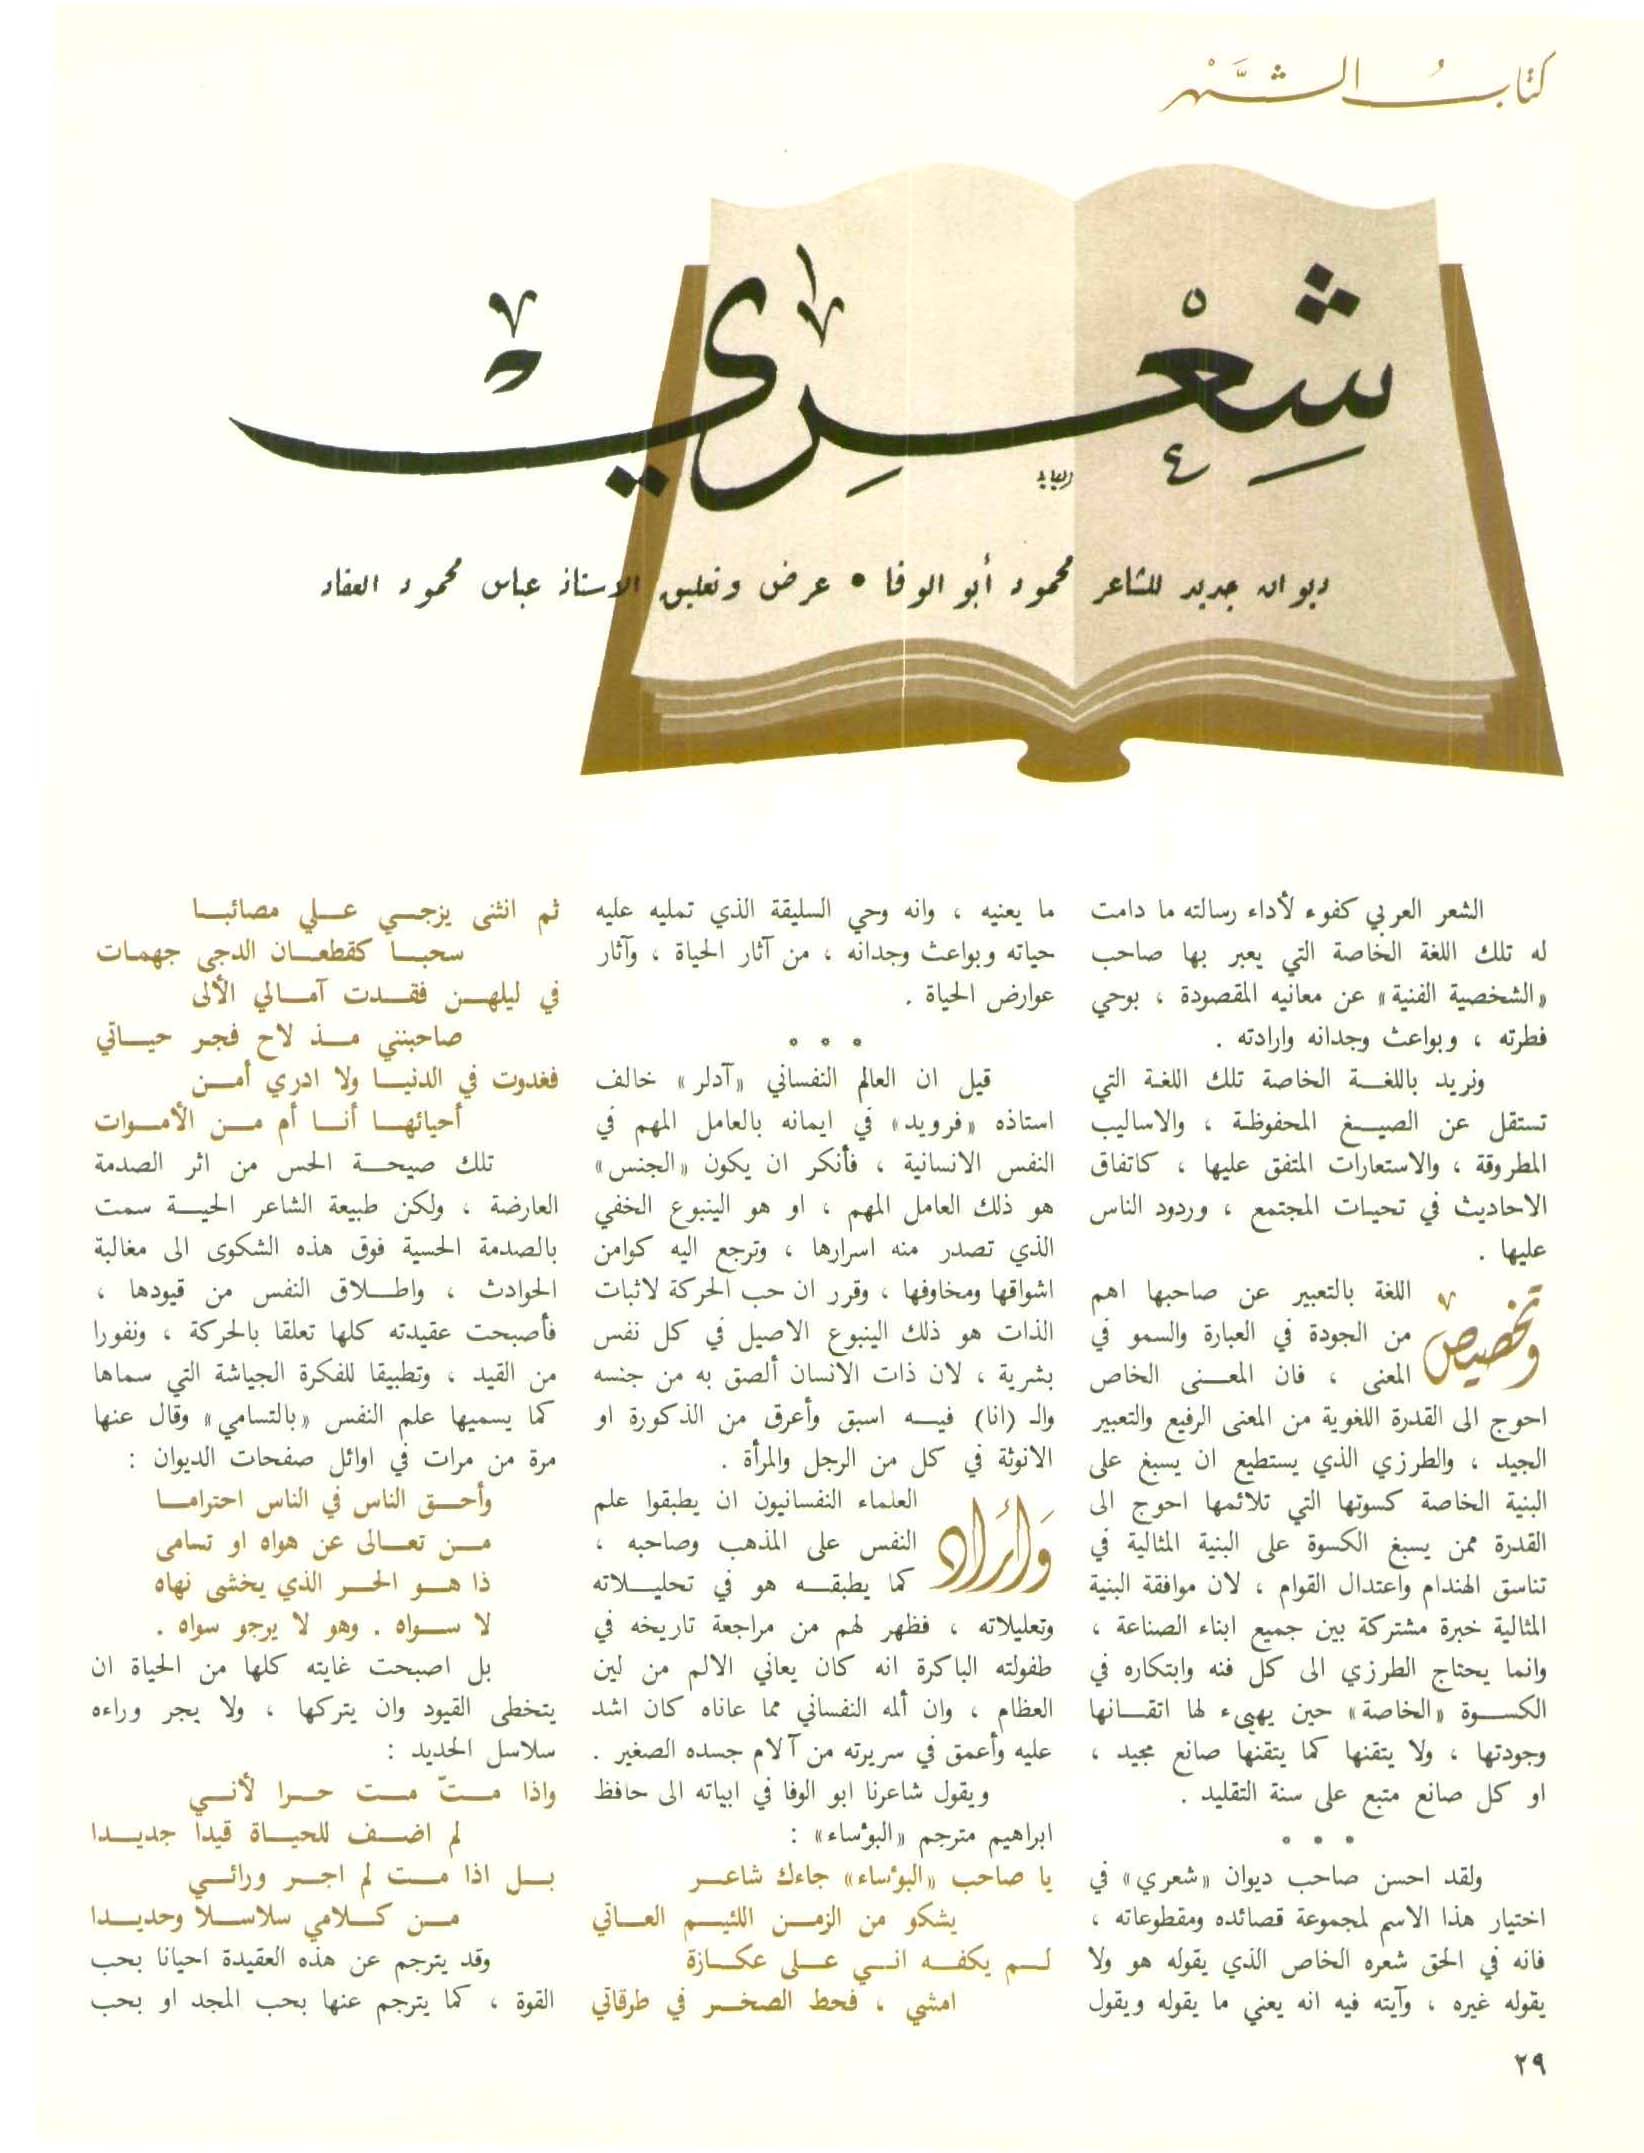 كتابُ الشَّهْر
شِعْري
ديوان جديد للشاعر محمود أبو الوفا • عرض وتعليق الاستاذ عباس محمود العقاد
الشعر العربي كفوء لأداء رسالته ما دامت
له تلك اللغة الخاصة التي يعبر بها صاحب
«الشخصية الفنية» عن معانيه المقصودة ، بوحي
فطرته ، وبواعث وجدانه وارادته .
ونريد باللغة الخاصة تلك اللغة التي
تستقل عن الصيغ المحفوظة ، والاساليب
المطروقة ، والاستعارات المتفق عليها ، كاتفاق
الاحاديث في تحيات المجتمع ، وردود الناس
عليها .
وتخصيص اللغة بالتعبير عن صاحبها اهم
من الجودة في العبارة والسمو في
المعنى ، فان المعنى الخاص
احوج الى القدرة اللغوية من المعنى الرفيع والتعبير
الجيد ، والطرزي الذي يستطيع ان يسبغ على
البنية الخاصة كسوتها التي تلائمها احوج الى
القدرة ممن يسبغ الكسوة على البنية المثالية في
تناسق الهندام واعتدال القوام ، لان موافقة البنية
المثالية خبرة مشتركة بين جميع ابناء الصناعة ،
وانما يحتاج الطرزي الى كل فنه وابتكاره في
الكسوة «الخاصة» حين يهيىء لها اتقانها
وجودتها ، ولا يتقنها كما يتقنها صانع مجيد ،
او كل صانع متبع على سنة التقليد .
• • •
ولقد احسن صاحب ديوان «شعري» في
اختيار هذا الاسم لمجموعة قصائده ومقطوعاته ،
فانه في الحق شعره الخاص الذي يقوله هو ولا
يقوله غيره ، وآيته فيه انه يعني ما يقوله ويقول
ما يعنيه ، وانه وحي السليقة الذي تمليه عليه
حياته وبواعث وجدانه ، من آثار الحياة ، وآثار
عوارض الحياة .
• • •
قيل ان العالم النفساني «آدلر» خالف
استاذه «فرويد» في ايمانه بالعامل المهم في
النفس الانسانية ، فأنكر ان يكون «الجنس»
هو ذلك العامل المهم ، او هو الينبوع الخفي
الذي تصدر منه اسرارها ، وترجع اليه كوامن
اشواقها ومخاوفها ، وقرر ان حب الحركة لاثبات
الذات هو ذلك الينبوع الاصيل في كل نفس
بشرية ، لان ذات الانسان ألصق به من جنسه
والـ (انا) فيه اسبق وأعرق من الذكورة او
الانوثة في كل من الرجل والمرأة .
وَأَرَاد العلماء النفسانيون ان يطبقوا علم
النفس على المذهب وصاحبه ،
كما يطبقه هو في تحليلاته
وتعليلاته ، فظهر لهم من مراجعة تاريخه في
طفولته الباكرة انه كان يعاني الالم من لين
العظام ، وان ألمه النفساني مما عاناه كان اشد
عليه وأعمق في سريرته من آلام جسده الصغير .
ويقول شاعرنا ابو الوفا في ابياته الى حافظ
ابراهيم مترجم «البؤساء» :
يا صاحب «البؤساء» جاءك شاعر
يشكو من الزمن اللئيم العاتي
لم يكفه اني على عكازة
امشي ، فحط الصخر في طرقاتي
ثم انثنى يزجي علي مصائبا
سحبا كقطعان الدجى جهمات
في ليلهن فقدت آمالي الألى
صاحبنني مذ لاح فجر حياتي
فغدوت في الدنيا ولا ادري أمن
أحيائها أنا أم من الأموات
تلك صيحة الحس من اثر الصدمة
العارضة ، ولكن طبيعة الشاعر الحية سمت
بالصدمة الحسية فوق هذه الشكوى الى مغالبة
الحوادث ، واطلاق النفس من قيودها ،
فأصبحت عقيدته كلها تعلقا بالحركة ، ونفورا
من القيد ، وتطبيقا للفكرة الجياشة التي سماها
كما يسميها علم النفس «بالتسامي» وقال عنها
مرة من مرات في اوائل صفحات الديوان :
وأحق الناس في الناس احتراما
من تعالى عن هواه او تسامى
ذا هو الحر الذي يخشى نهاه
لا سواه . وهو لا يرجو سواه .
بل اصبحت غايته كلها من الحياة ان
يتخطى القيود وان يتركها ، ولا يجر وراءه
سلاسل الحديد :
واذا متّ مت حرا لأني
لم اضف للحياة قيدا جديدا
بل اذا مت لم اجر ورائي
من كلامي سلاسلا وحديدا
وقد يترجم عن هذه العقيدة احيانا بحب
القوة ، كما يترجم عنها بحب المجد او بحب
٢٩